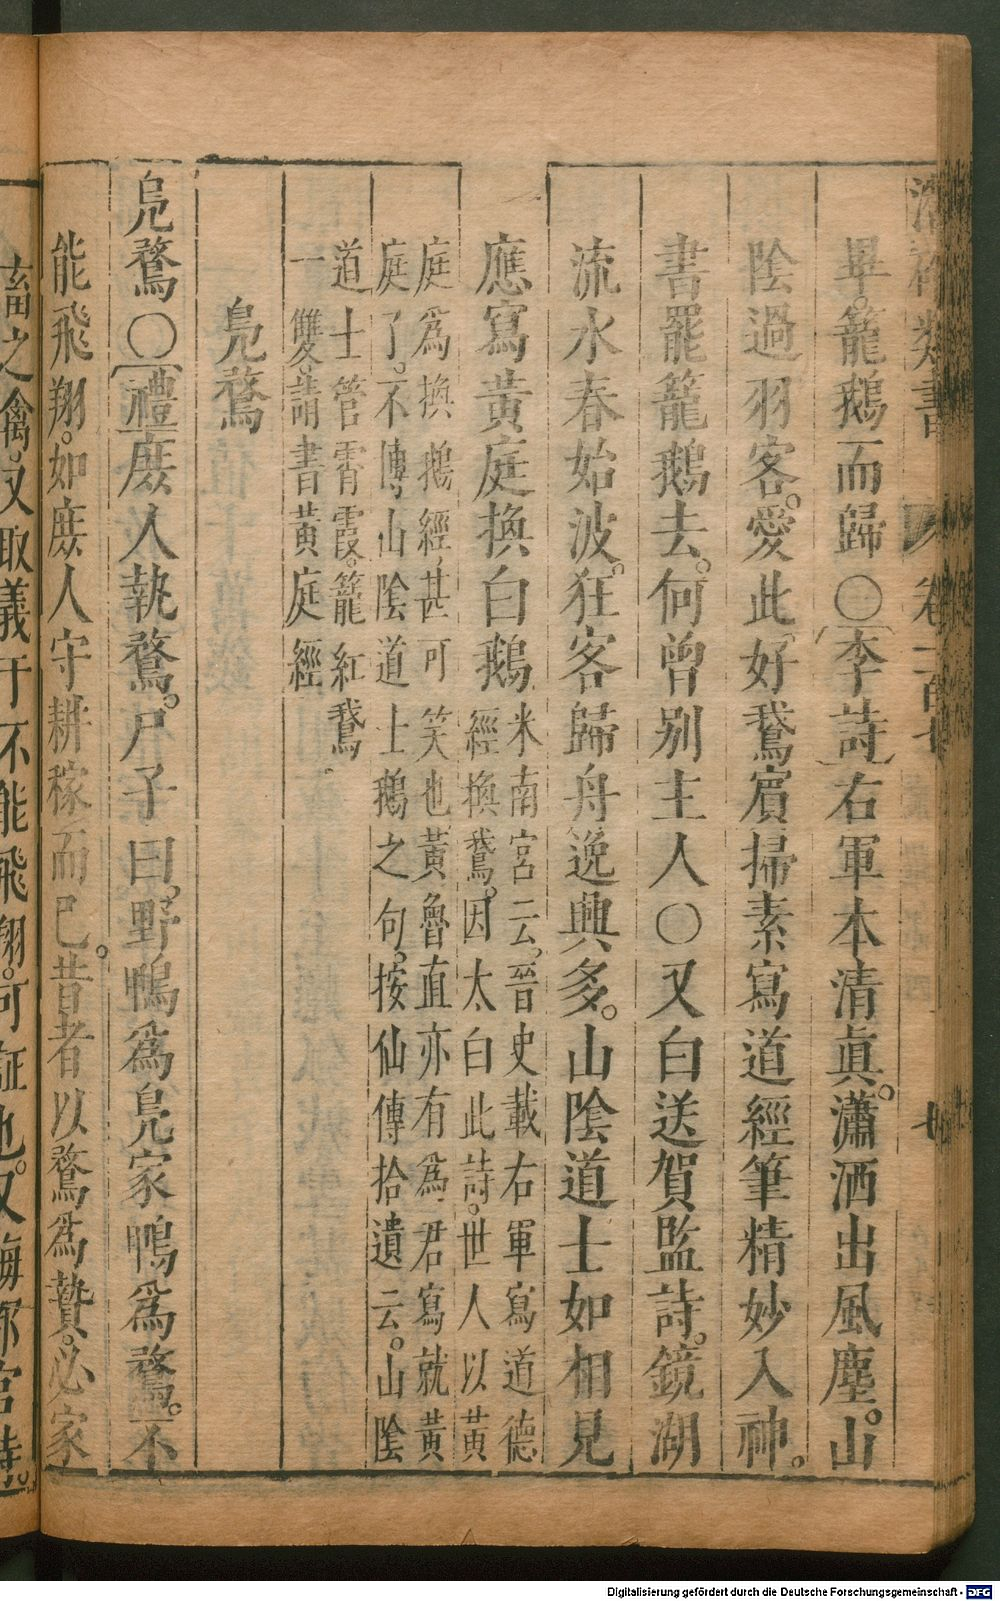 畢。籠鵝而歸〇李詩右軍本清眞。瀟洒出風塵。山
陰過羽客。愛此好鵞賓掃素寫道經筆精妙入神。
書罷籠鵝去。何曾別主人〇又白送賀監詩。鏡湖
流水春始波。狂客歸舟逸興多。山陰道士如相見
應寫黄庭換白鵝
米南宮云。晉史載右軍寫道德
經換鵞。因太白此詩。世人以黄
庭爲換鵝經。甚可笑也黄魯直亦有爲君寫就黄
庭了。不傳山陰道士鵝之句。按仙傳拾遺云。山陰
道士管霄霞。籠紅鵞
一雙。請書黄庭經
鳧鶩
鳧鶩〇禮庶人執鶩。尸子曰。野鴨爲鳧家鴨爲鶩。不
能飛翔。如庶人守耕稼而已。昔者以鶩爲贄。必家
畜之禽。又取義于不能飛翔。可証也。又
類書 卷 七
Digitalisierung gefördert durch die Deutsche Forschungsgemeinschaft - DFG